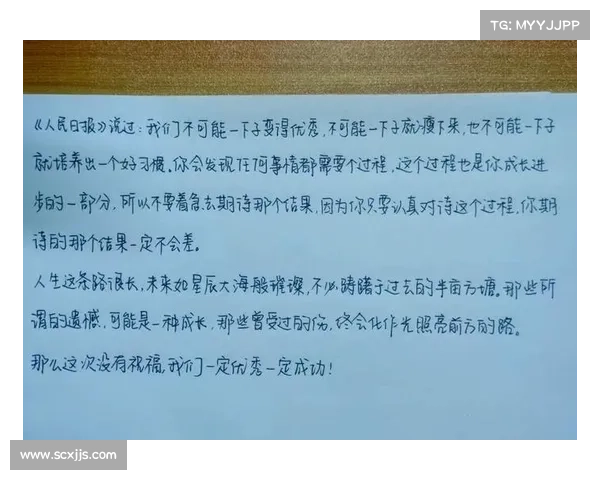 TG: MYYJJPP
《人民日报》说过：我们不可能一下子变得优秀，不可能一下子就瘦下来，也不可能一下子
就培养出一个好习惯。你会发现任何事情都需要个过程，这个过程也是你成长进
步的一部分，所以不要着急去期待那个结果，因为你只要认真对待这个过程，你期
待的那个结果一定不会差。
人生这条路很长，未来如星辰大海般璀璨，不必踌躇于过去的半亩方塘。那些所
谓的遗憾，可能是一种成长，那些曾受过的伤，终会化作光照亮前方的路。
那么这次没有祝福，我们一定优秀一定成功！
www.scxjjs.com